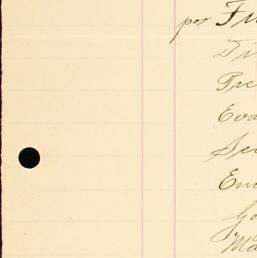 por Fr
Di
Pre
Eva
Ser
Em
Go
Ma